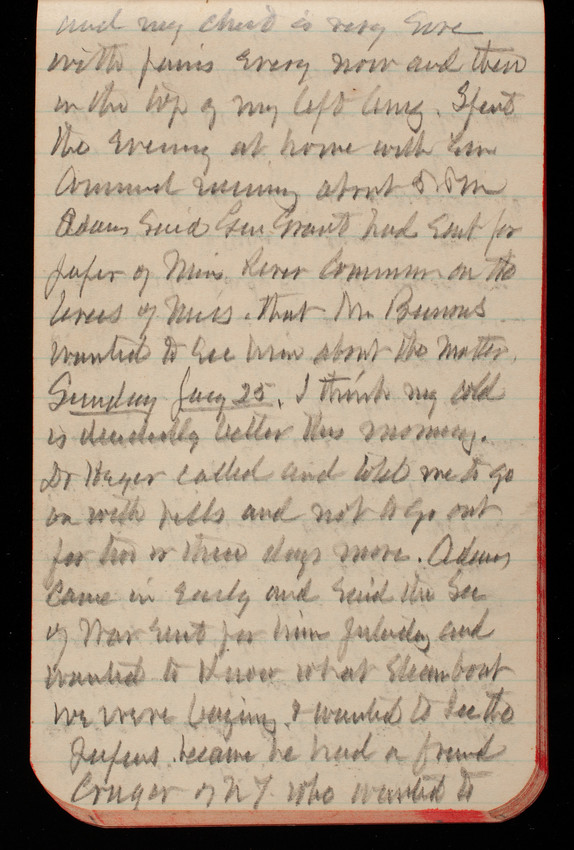 and my chest is very sore
with pains every now and then
in the top of my left lung. Spent
the evening at home with
about 8 PM
Adams said Gen Grant had sent for
paper of Miss. River Commn on the
levees of Miss. that Mr
wanted to see him about the matter.
Sunday Jany 25. I think my cold
is decidedly better this morning.
Dr Heger called and told me to go
on with pills and not to go out
for two or three days more. Adams
came in early and said the Sec
of War sent for him and
wanted to know what steamboat
we were buying. & wanted to see the
papers because he had a friend
Cruger of N.Y. who wanted to